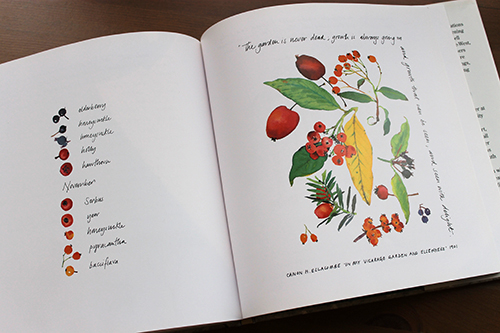 elderberry
honeysuckle
honeysuckle
holly
hawthorn
November
Sorbus
yew
honeysuckle
pyracantha
baccifera
"The garden is never dead; growth is always going on
and growth that can be seen and seen with delight"
CANON H. ELLACOMBE 'IN MY VICARAGE GARDEN AND ELSEWHERE' 1901